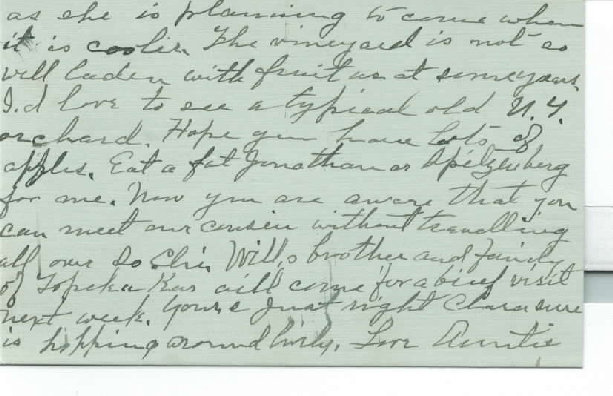 as she is planning to come when
it is cooler. The vineyard is not so
well laden with fruit as at some years.
I.d love to see a typical old N.Y.
orchard. Hope you have lots of
apples. Eat a fat Jonathan or Spitzenberg
for me. Now you are aware that you
can meet our cousin without travelling
all over So. Will,s brother and family
of Topeka Kas will come for a brief visit
next week. Yours just right Clara sure
is hopping around lively. Love Auntie